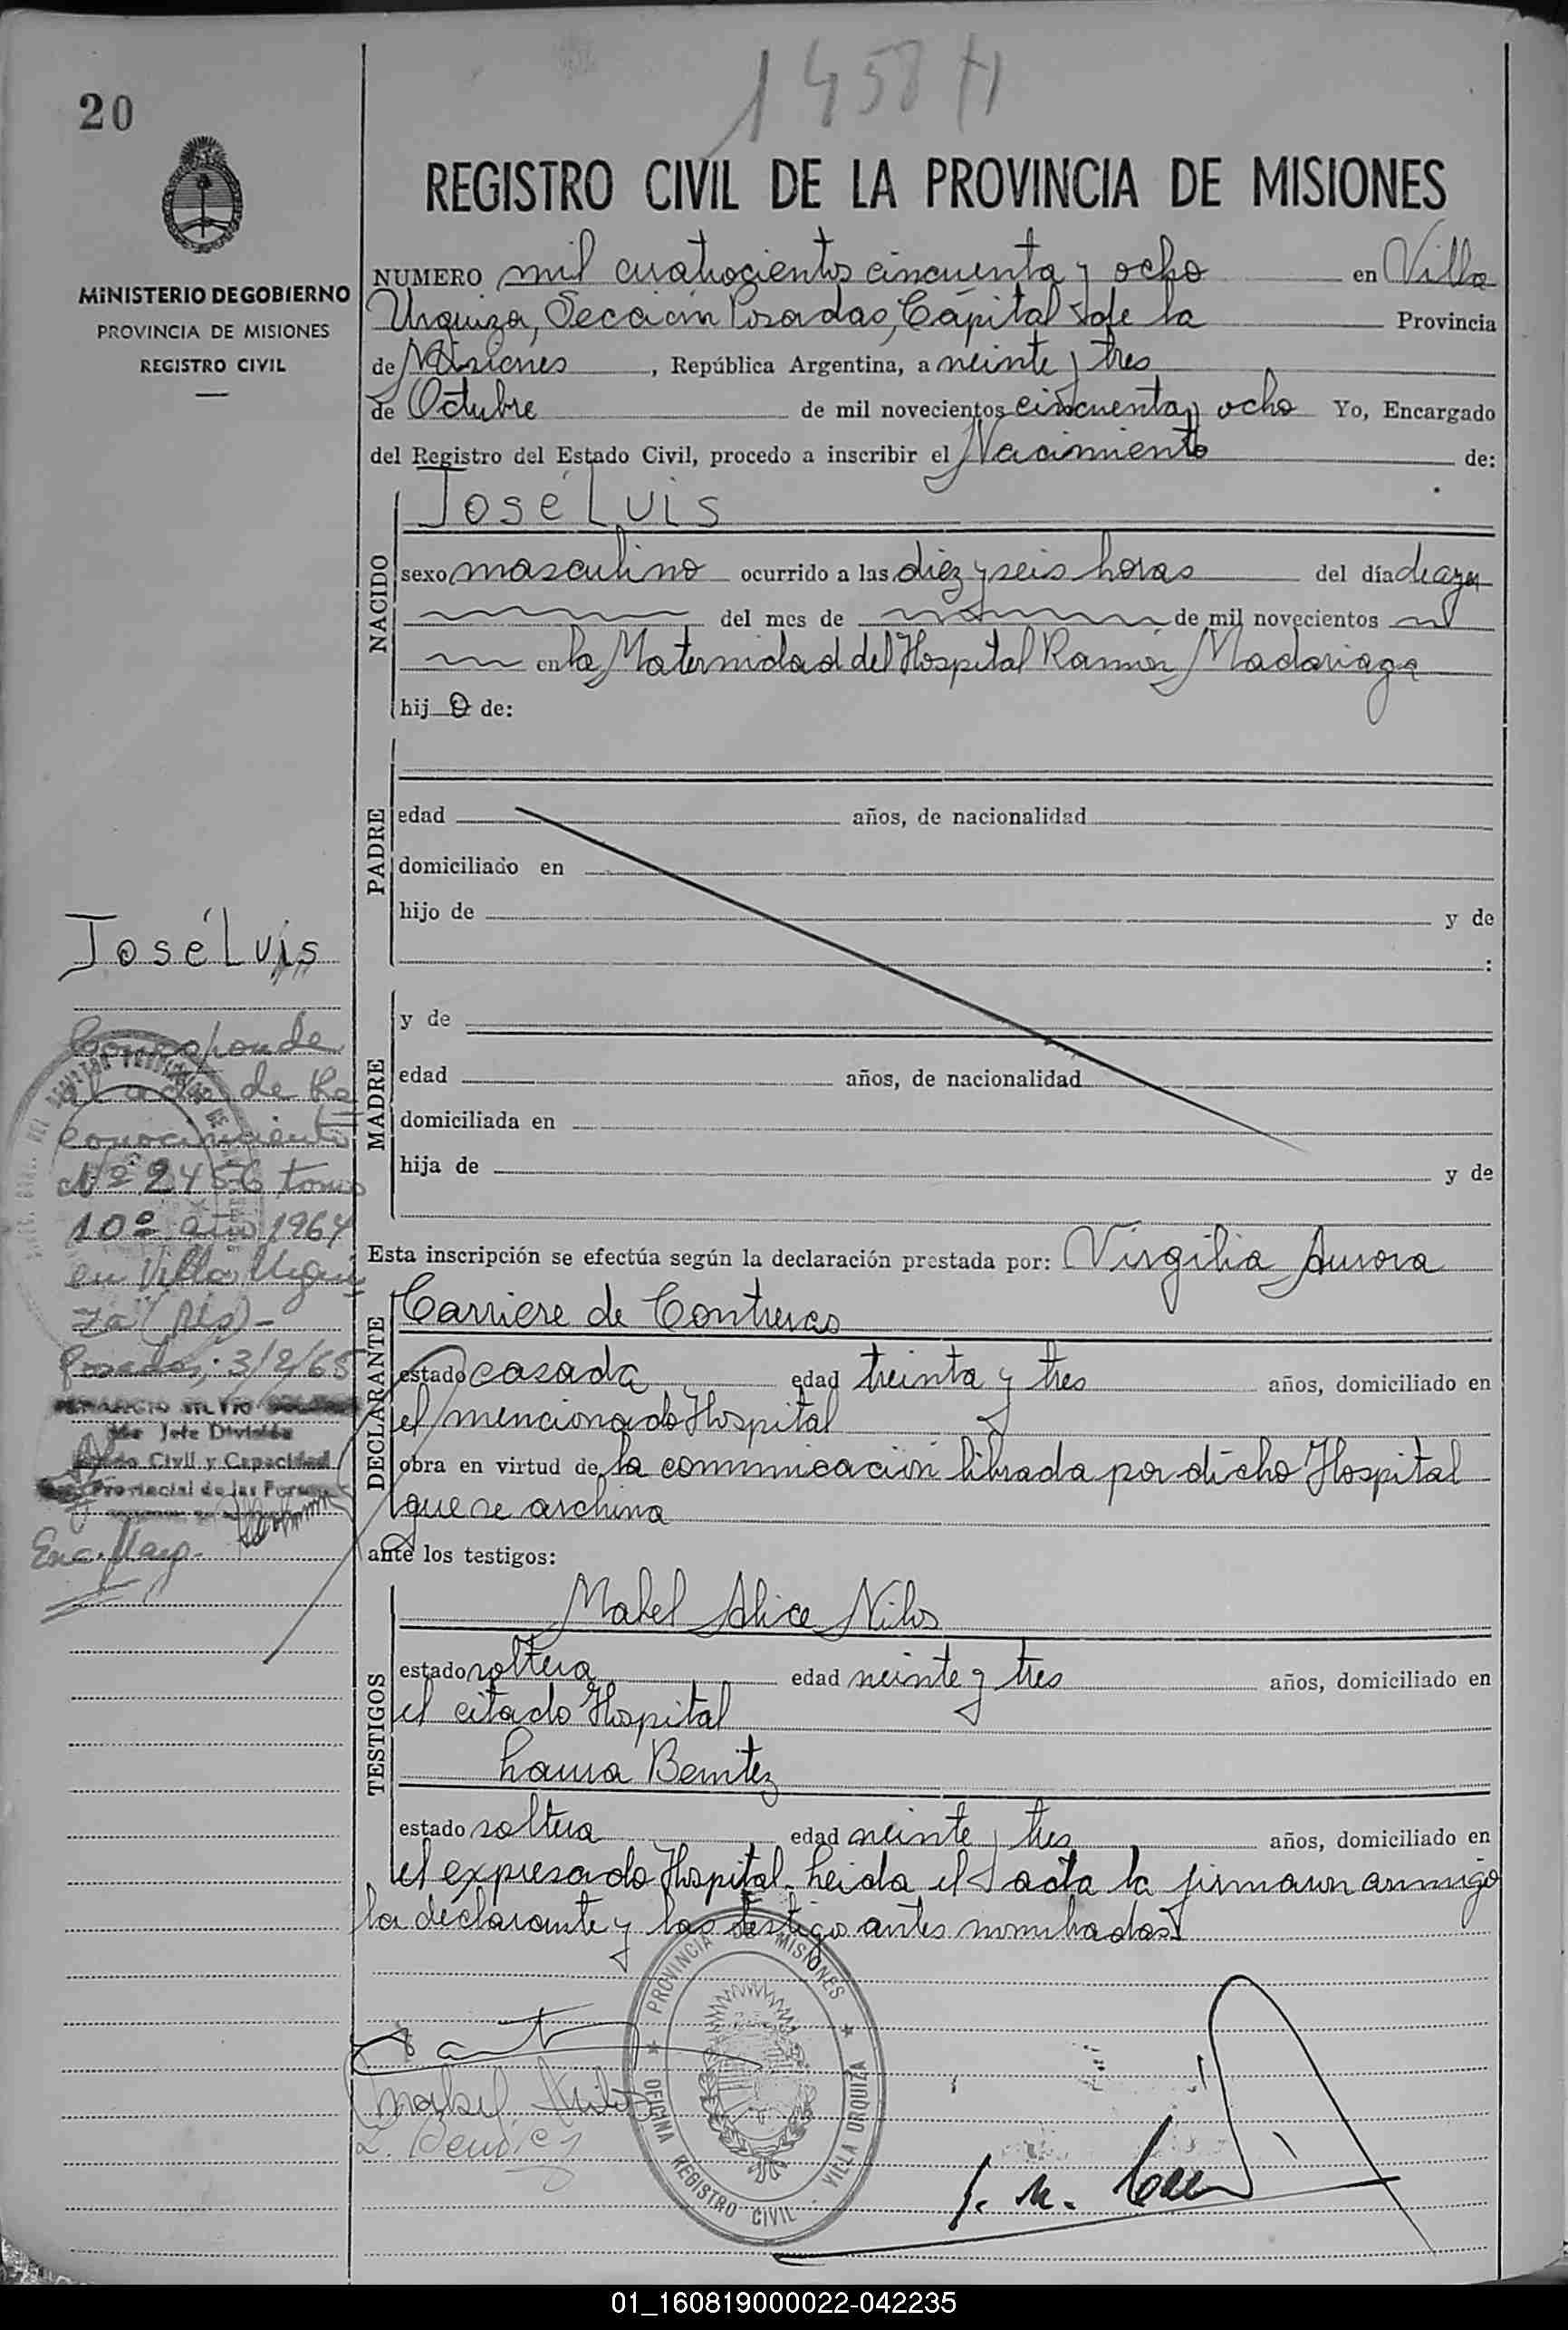 1458 H
20
REGISTRO CIVIL DE LA PROVINCIA DE MISIONES
MINISTERIO DE GOBIERNO
PROVINCIA DE MISIONES
REGISTRO CIVIL
NUMERO mil cuatrocientos cincuenta y ocho en Villa
Urquiza, Sección Posadas, Capital de la Provincia
de Misiones, República Argentina, a veinte y tres
de Octubre de mil novecientos cincuenta y ocho Yo, Encargado
del Registro del Estado Civil, procedo a inscribir el Nacimiento de:
NACIDO
José Luis
sexo masculino ocurrido a las diez y seis horas del día de ayer
del mes de de mil novecientos
en la Maternidad del Hospital Ramón Madariaga
hijo de:
PADRE
edad años, de nacionalidad
domiciliado en
hijo de y de
:
MADRE
y de
edad años, de nacionalidad
domiciliada en
hija de y de
Esta inscripción se efectúa según la declaración prestada por: Virgilia Aurora
DECLARANTE
Carriere de Contreras
estado casada edad treinta y tres años, domiciliado en
el mencionado Hospital
obra en virtud de la comunicación librada por dicho Hospital
que se archiva
ante los testigos:
TESTIGOS
Mabel Alice Nilos
estado soltera edad veinte y tres años, domiciliado en
el citado Hospital
Laura Benitez
estado soltera edad veinte y tres años, domiciliado en
el expresado Hospital. Leida el acta la firmaron conmigo
la declarante y las testigo antes nombradas
José Luis
Corresponde
al acta de Re
conocimiento
Nº 2456 tomo
10º año 1964
en Villa Urqui
za (Mis)-
Posadas, 3/2/65
Jefe División
Estado Civil y Capacidad
Provincial de las Personas
Enc.
PROVINCIA DE MISIONES
OFICINA REGISTRO CIVIL - VILLA URQUIZA
Mabel
L. Benitez
01_160819000022-042235